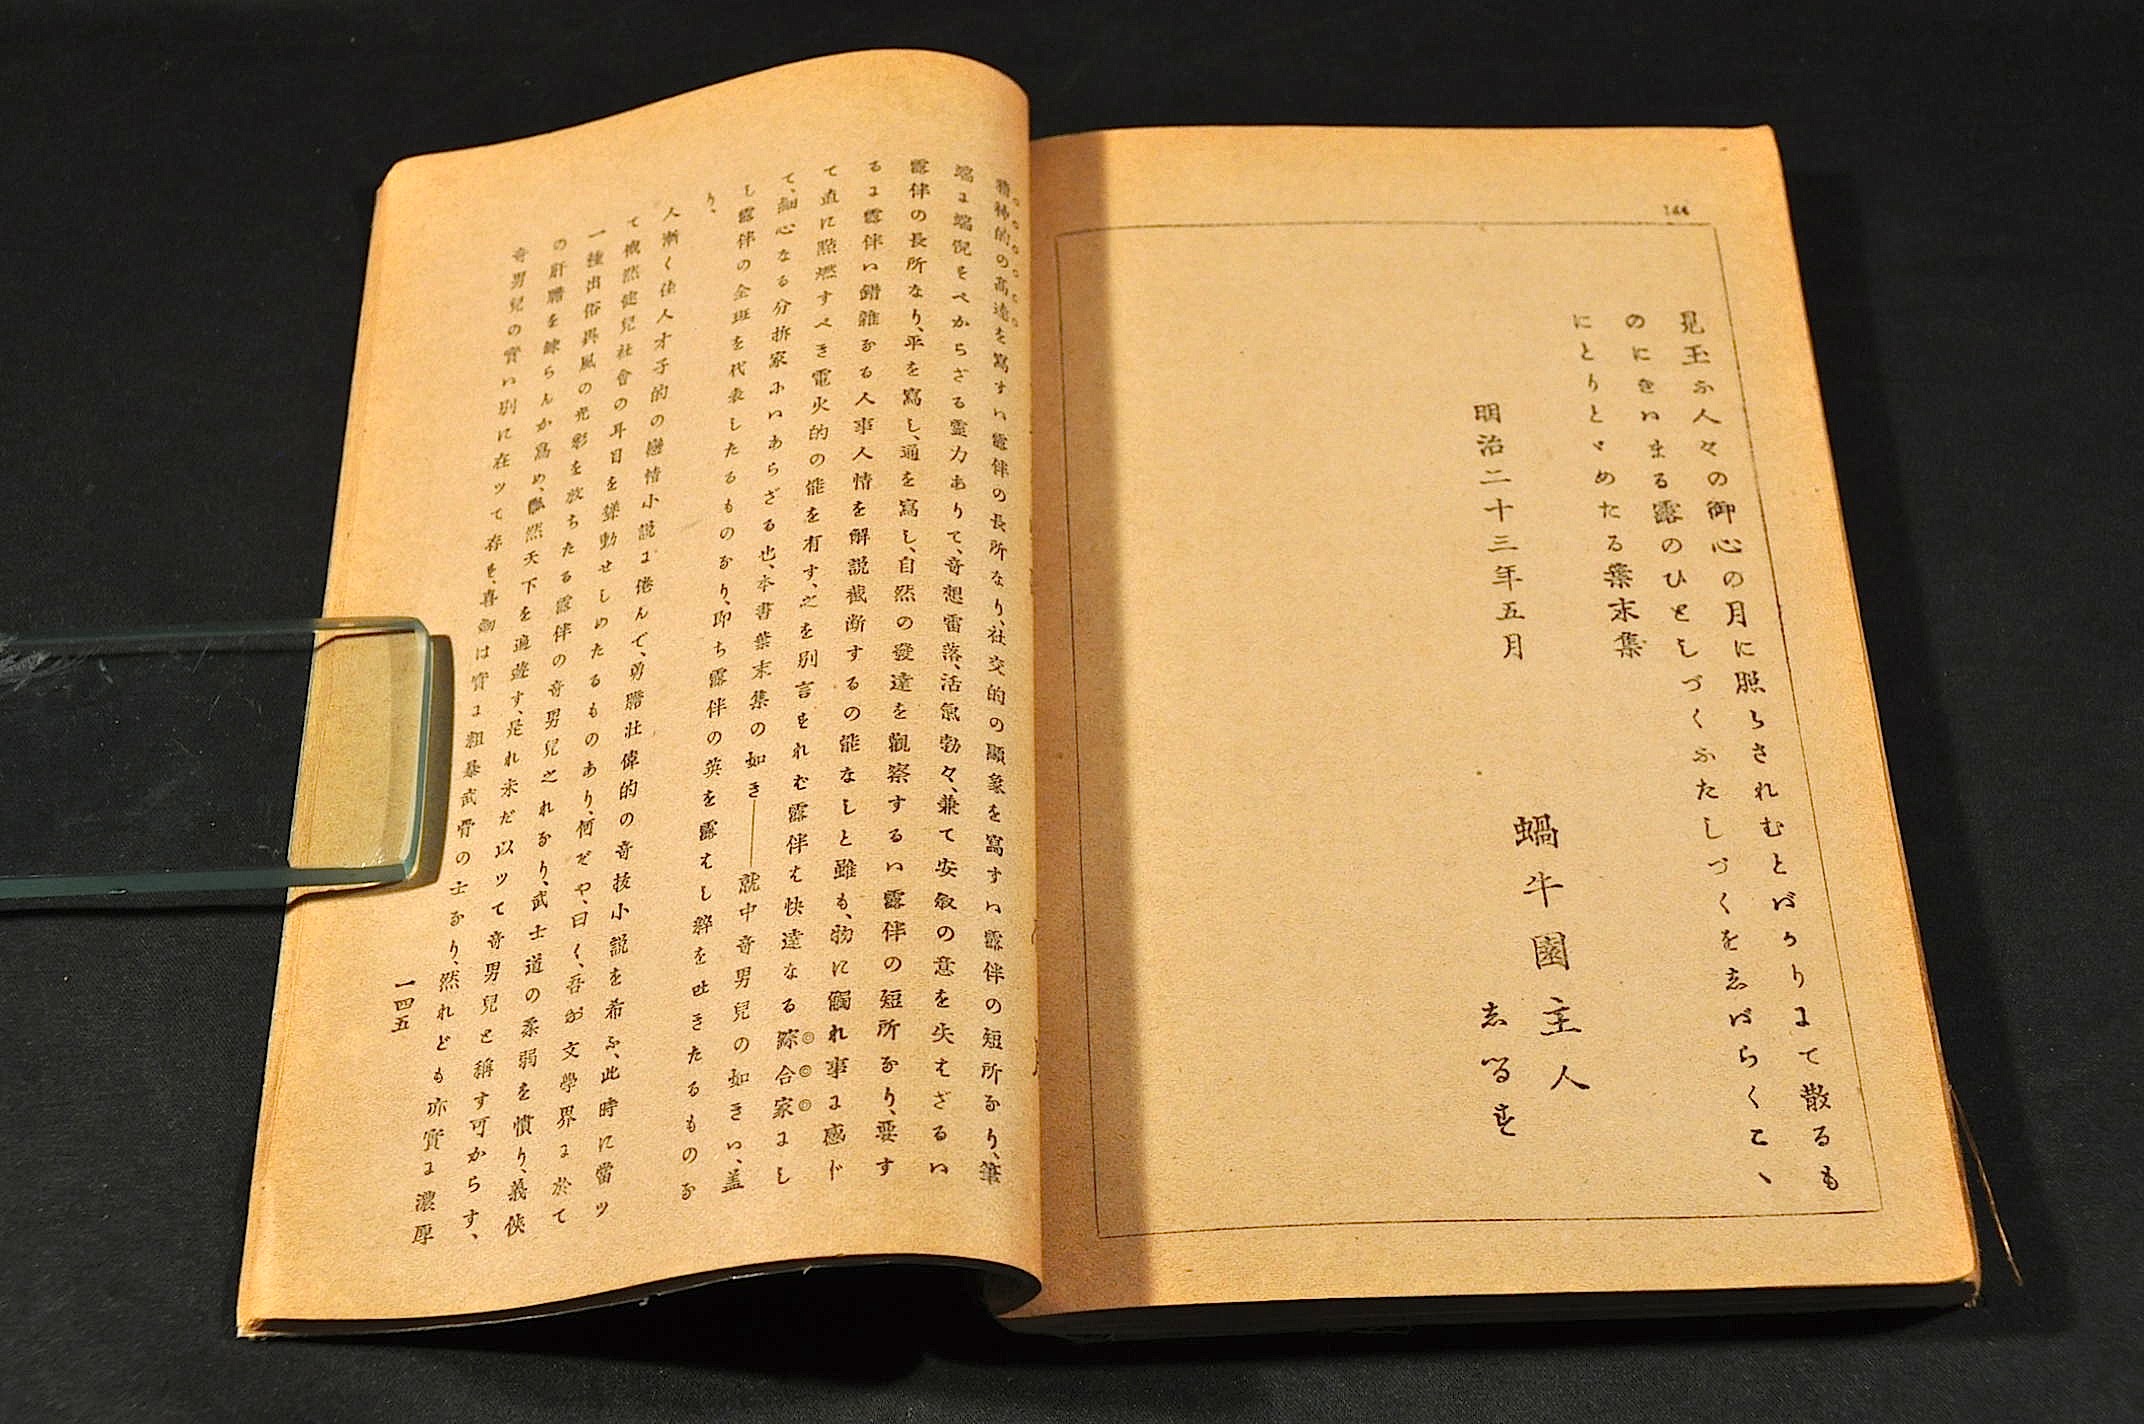 144
見玉ふ人々の御心の月に照らされむとばかりまて散るも
のにきいまる露のひとしづくふたしづくを志ばらくこゝ
にとりとゞめたる葉末集
明治二十三年五月
蝸牛園主人
志るす
精神的の高遠を寫すハ露伴の長所なり、社交的の顯象を寫すハ露伴の短所なり、筆
端ま端倪をべからざる霊力ありて、奇想雷落、活氣勃々、兼て安敍の意を失はざるハ
露伴の長所なり、平を寫し、通を寫し、自然の發達を觀察するハ露伴の短所なり、要す
るま露伴ハ錯雜なる人事人情を解説截斷するの能なしと雖も、物に觸れ事ま感ド
て直に點燃すべき電火的の能を有す、之を別言をれむ露伴は快達なる綜合家まし
て、細心なる分拆家ふハあらざる也、本書葉末集の如き——就中奇男兒の如きハ、盖
し露伴の全班を代表したるものなり、即ち露伴の英を露はし粹を吐きたるものな
り、
人漸く佳人才子的の戀情小説ま倦んで、勇膽壯偉的の奇拔小説を希ふ、此時に當ッ
て俄然健兒社會の耳目を聳動せしめたるものあり、何ぞや、曰く、吾が文學界ま於て
一種出俗異風の光彩を放ちたる露伴の奇男兒之れなり、武士道の柔弱を憤り、義俠
の肝膽を錬らんか爲め、飄然天下を遍遊す、是れ未だ以ッて奇男兒と稱す可からす、
奇男兒の實ハ別に在ッて存を、喜劒は實ま粗暴武骨の士なり、然れども亦實ま濃厚
一四五